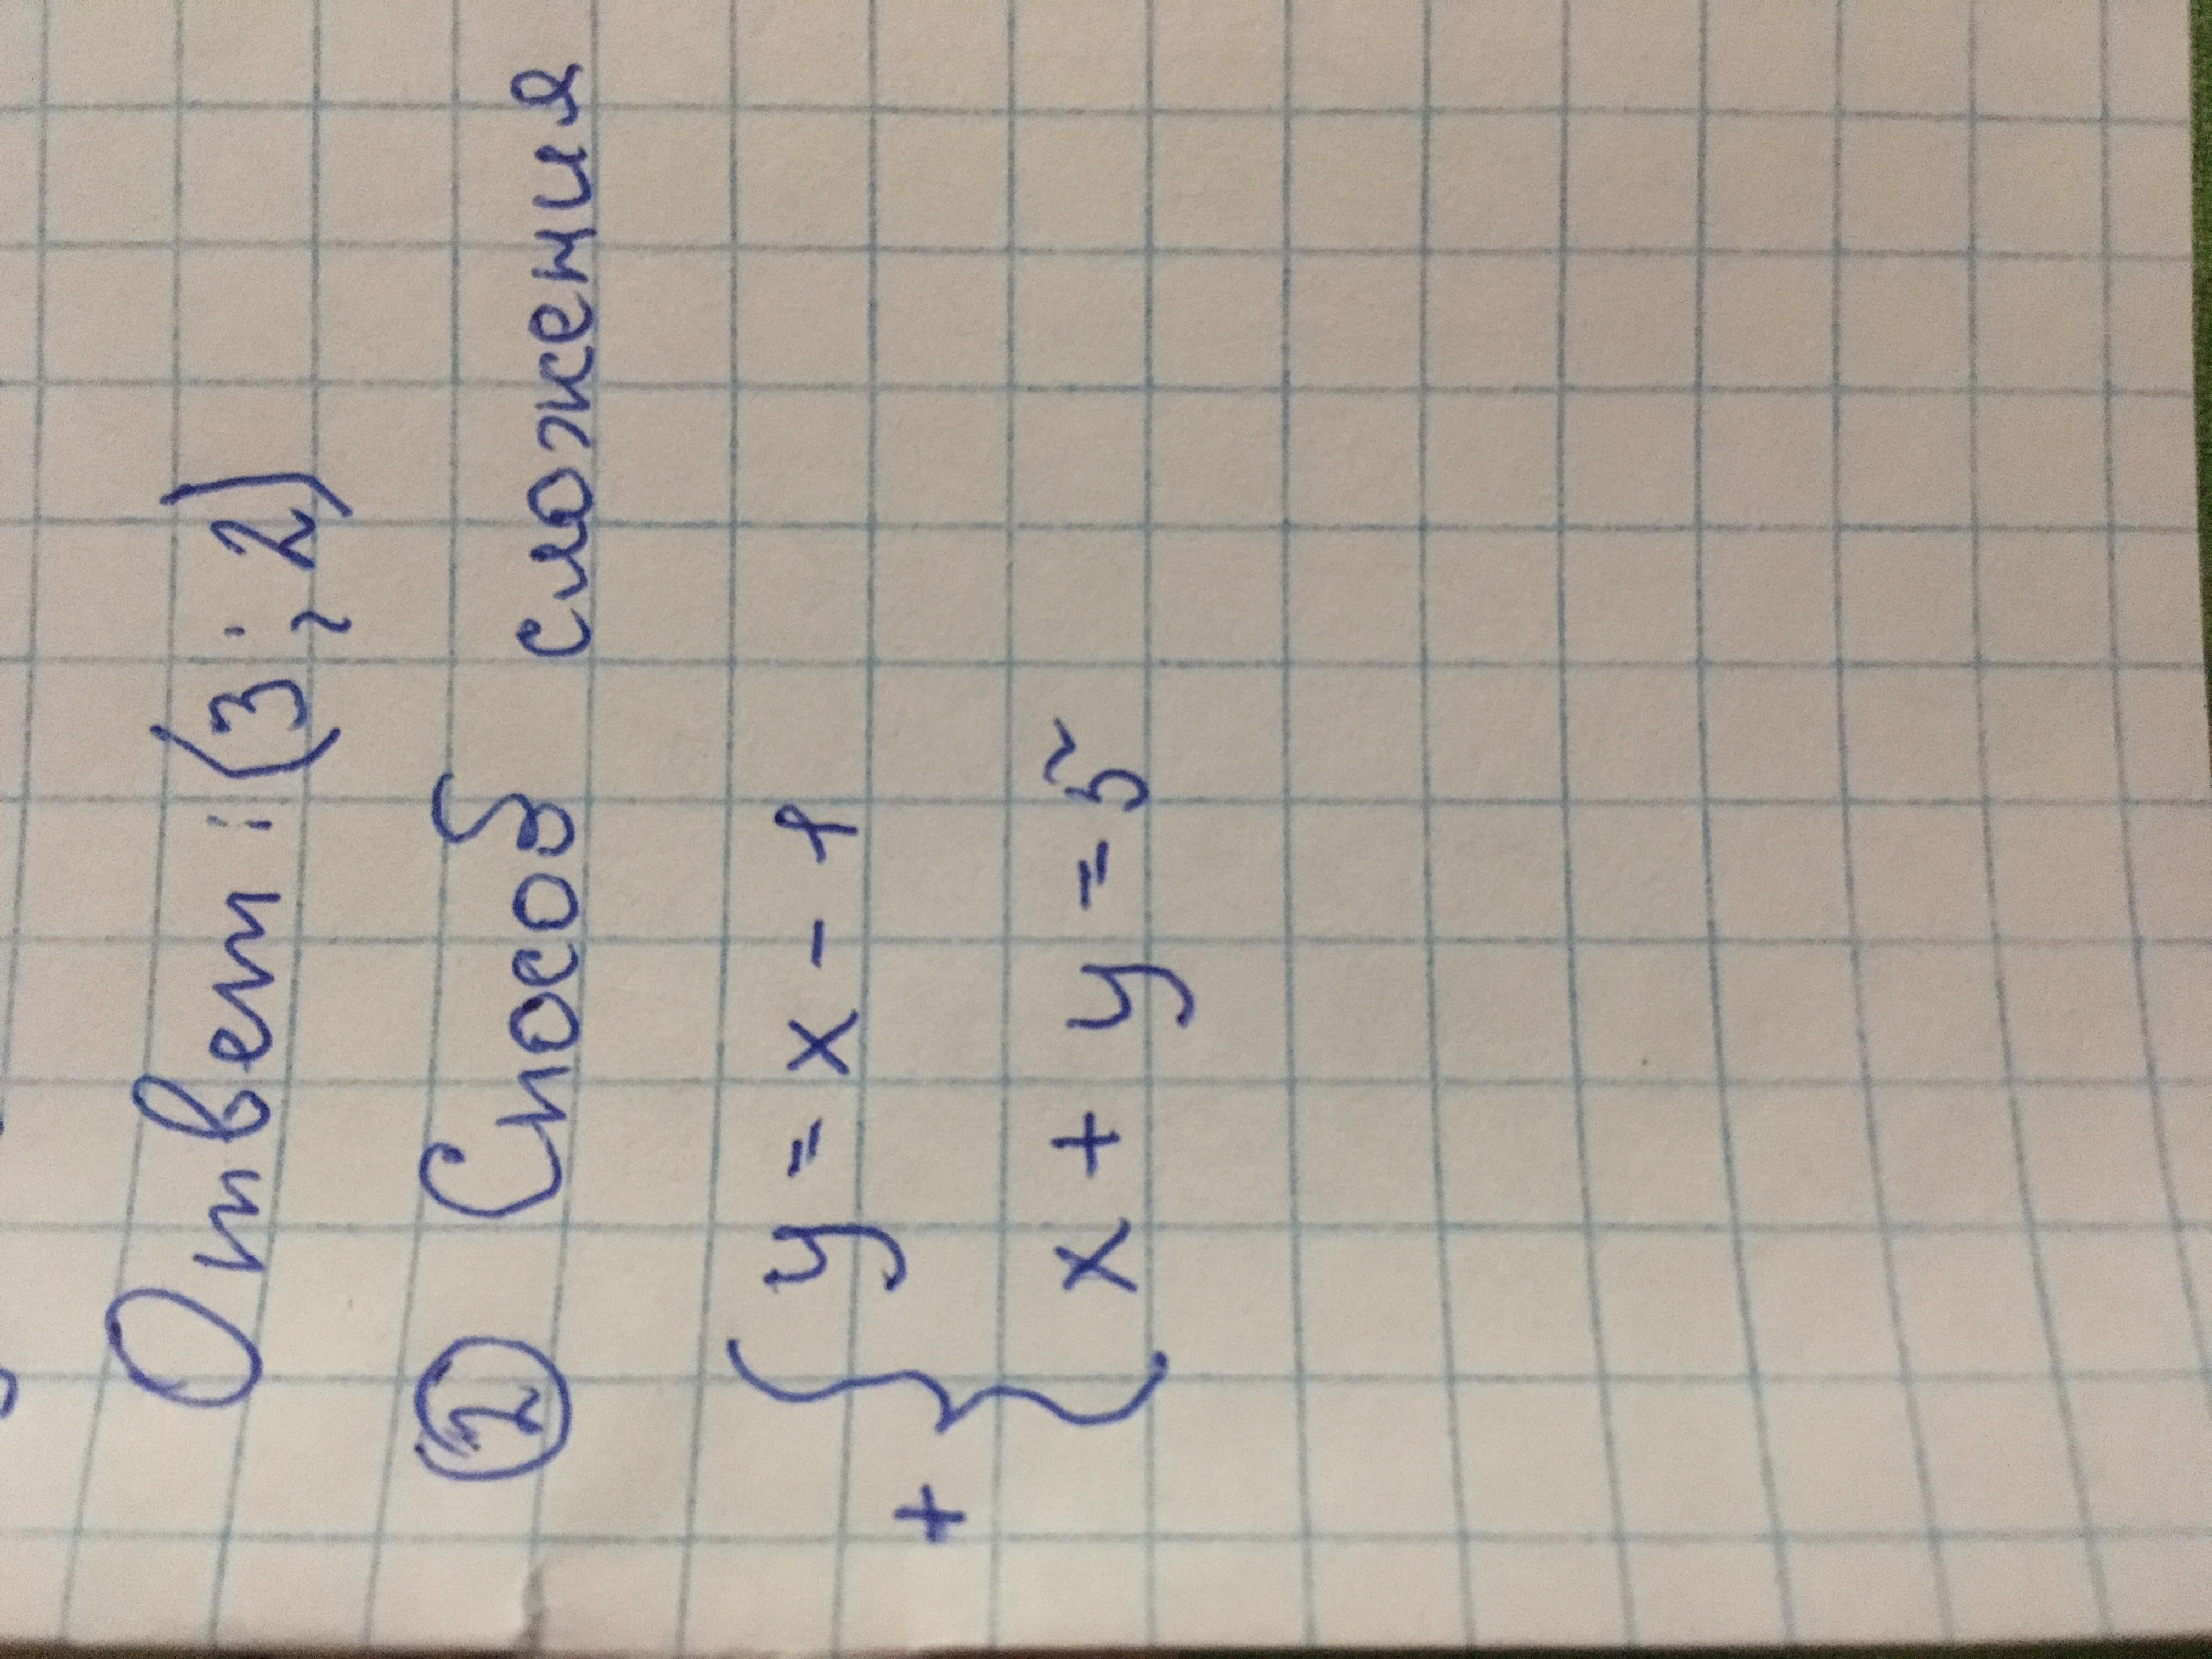 Ответ: (3; 2)
② Способ сложения
+ { y = x - 1
x + y = 5